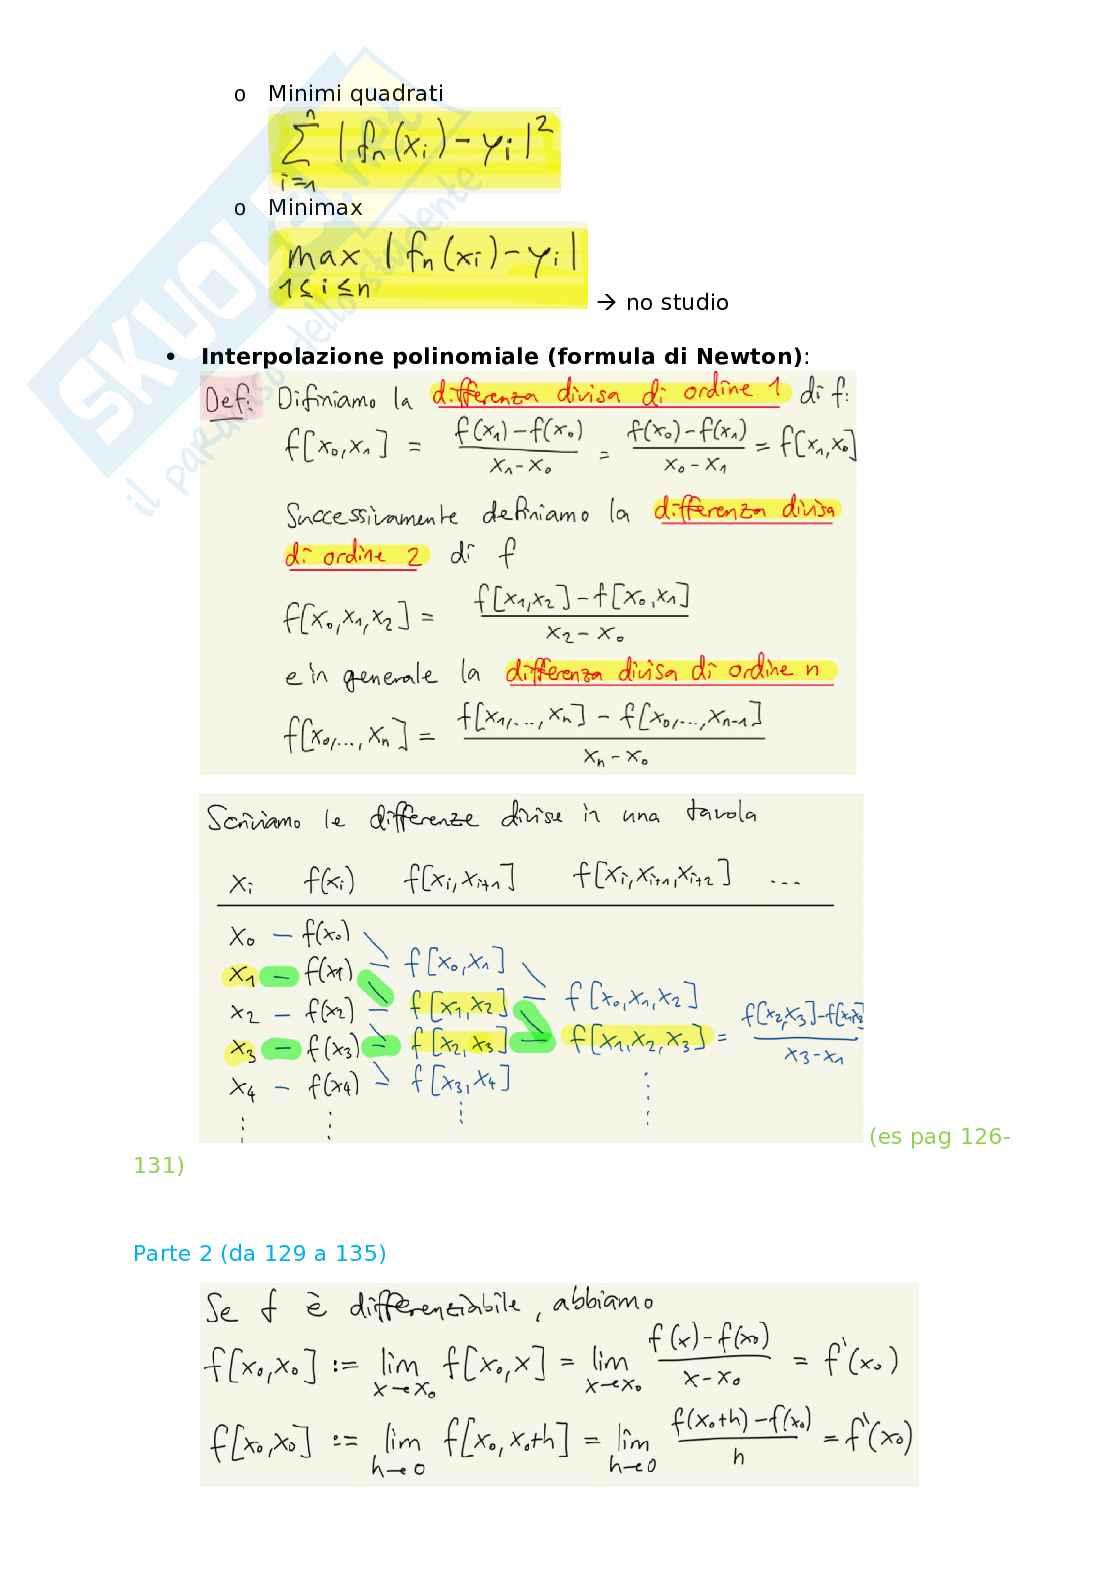 o Minimi quadrati
∑_{i=1}^{n} |f_n(x_i) - y_i|^2
o Minimax
max_{1≤i≤n} |f_n(x_i) - y_i| → no studio
• Interpolazione polinomiale (formula di Newton):
Def: Difiniamo la differenza divisa di ordine 1 di f:
f[x_0,x_1] = (f(x_1)-f(x_0))/(x_1-x_0) = (f(x_0)-f(x_1))/(x_0-x_1) = f[x_1,x_0]
Successivamente definiamo la differenza divisa
di ordine 2 di f
f[x_0,x_1,x_2] = (f[x_1,x_2]-f[x_0,x_1])/(x_2-x_0)
e in generale la differenza divisa di ordine n
f[x_0,...,x_n] = (f[x_1,...,x_n] - f[x_0,...,x_{n-1}])/(x_n-x_0)
Scriviamo le differenze divise in una tavola
x_i f(x_i) f[x_i,x_{i+1}] f[x_i,x_{i+1},x_{i+2}] ...
x_0 - f(x_0)
f[x_0,x_1]
x_1 - f(x_1)
f[x_0,x_1,x_2]
x_2 - f(x_2) - f[x_1,x_2]
x_3 - f(x_3) = f[x_2,x_3] - f[x_1,x_2,x_3] = (f[x_2,x_3]-f[x_1,x_2])/(x_3-x_1)
x_4 - f(x_4) - f[x_3,x_4]
⋮ ⋮ ⋮ ⋮
(es pag 126-
131)
Parte 2 (da 129 a 135)
Se f è differenziabile, abbiamo
f[x_0,x_0] := lim_{x→x_0} f[x_0,x] = lim_{x→x_0} (f(x)-f(x_0))/(x-x_0) = f'(x_0)
f[x_0,x_0] := lim_{h→0} f[x_0,x_0+h] = lim_{h→0} (f(x_0+h)-f(x_0))/h = f'(x_0)
SKUOLA.net
il paradiso dello studente